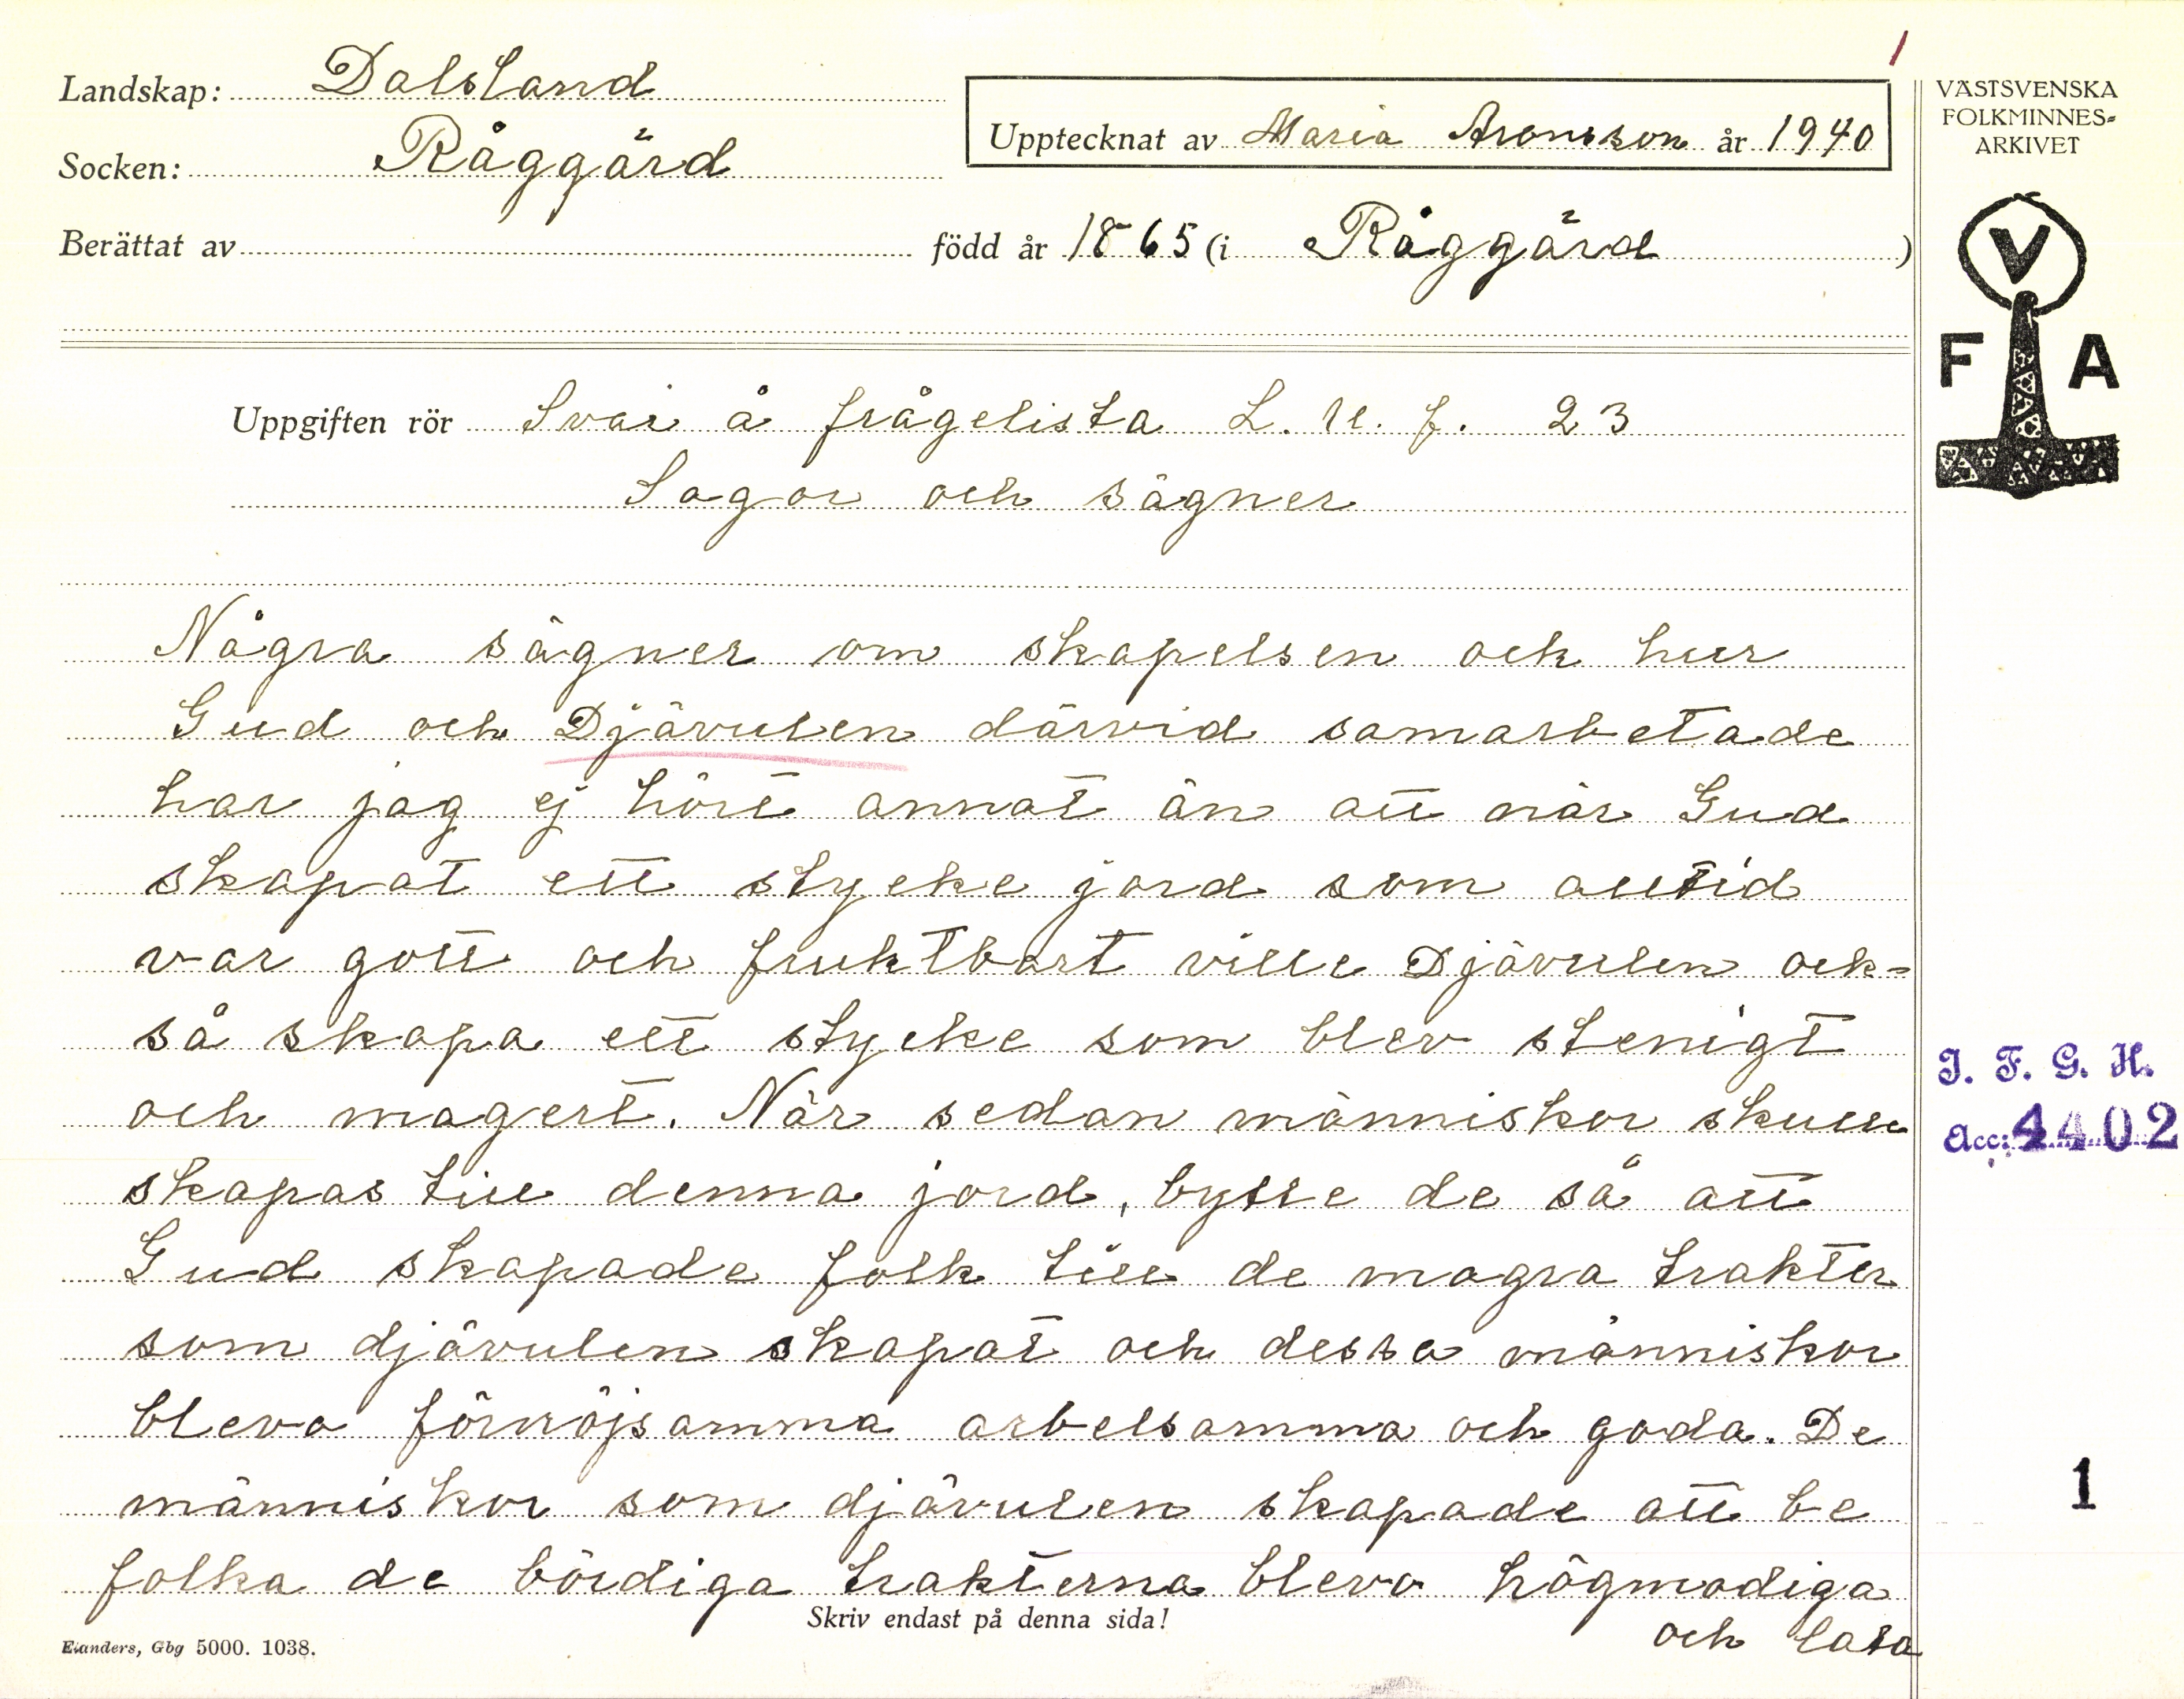 Landskap: Dalsland
Socken: Råggärd
Berättat av
Upptecknat av Maria Aronsson år 1940
född år 1865 (i Råggärd )
Uppgiften rör Svar å frågelista L. U. f. 23
Sagor och sägner
Några sägner om skapelsen och hur
Gud och Djävulen därvid samarbetade
har jag ej hört annat än att när Gud
skapat ett stycke jord som alltid
var gott och fruktbart ville Djävulen ock-
så skapa ett stycke som blev stenigt
och magert. När sedan människor skulle
skapas till denna jord, bytte de så att
Gud skapade folk till de magra trakter
som djävulen skapat och dessa människor
blevo förnöjsamma arbetsamma och goda. De
människor som djävulen skapade att be
folka de bördiga trakterna blevo högmodiga
och lata
Skriv endast på denna sida!
Elanders, Gbg 5000. 1038.
1
VÄSTSVENSKA
FOLKMINNES-
ARKIVET
V
F A
I. F. G. H.
Acc: 4402
1